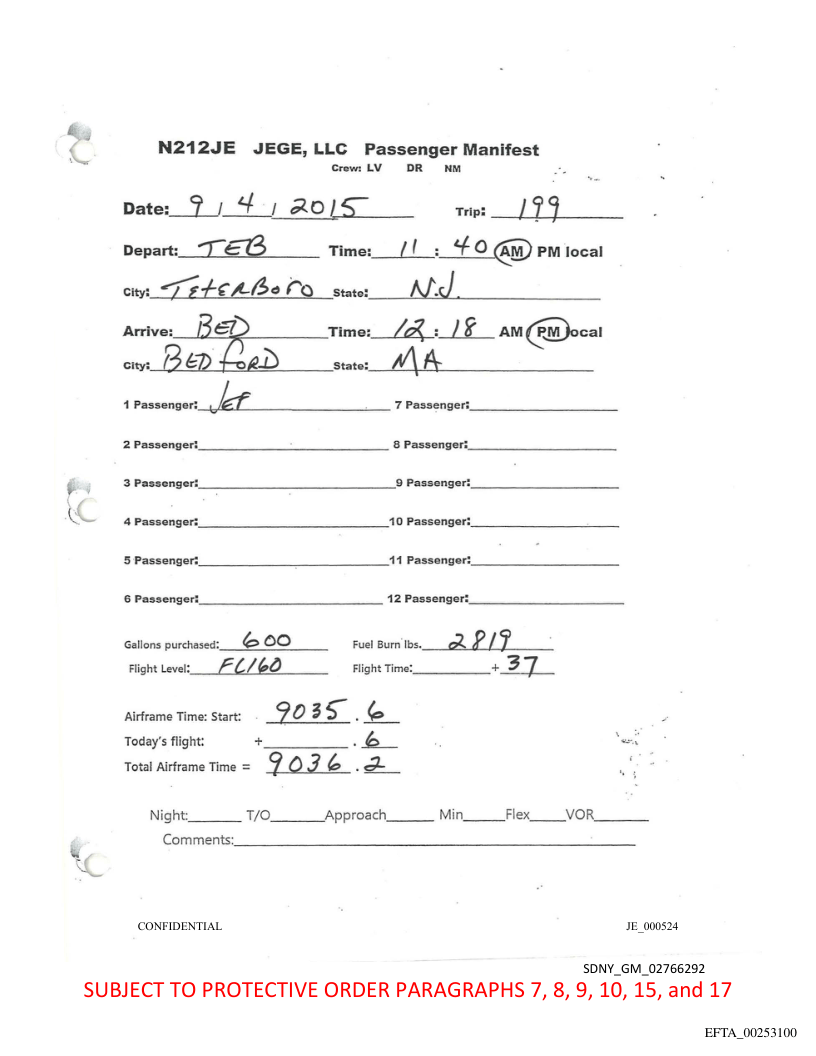 N212JE JEGE, LLC Passenger Manifest
Crew: LV DR NM
Date: 9 / 4 / 2015 Trip: 199
Depart: TEB Time: 11 : 40 AM PM local
City: TETERBORO State: N.J.
Arrive: BED Time: 12 : 18 AM PM local
City: BEDFORD State: MA
1 Passenger: JEF 7 Passenger:
2 Passenger: 8 Passenger:
3 Passenger: 9 Passenger:
4 Passenger: 10 Passenger:
5 Passenger: 11 Passenger:
6 Passenger: 12 Passenger:
Gallons purchased: 600 Fuel Burn lbs. 2819
Flight Level: FL160 Flight Time: + 37
Airframe Time: Start: 9035 . 6
Today's flight: + . 6
Total Airframe Time = 9036 . 2
Night: T/O Approach Min Flex VOR
Comments:
CONFIDENTIAL JE_000524
SDNY_GM_02766292
SUBJECT TO PROTECTIVE ORDER PARAGRAPHS 7, 8, 9, 10, 15, and 17
EFTA_00253100